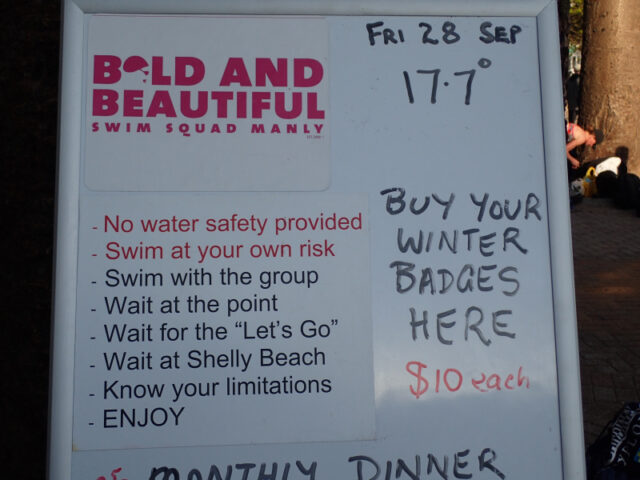 BOLD AND
BEAUTIFUL
SWIM SQUAD MANLY
FRI 28 SEP
17.7°
- No water safety provided
- Swim at your own risk
- Swim with the group
- Wait at the point
- Wait for the “Let’s Go”
- Wait at Shelly Beach
- Know your limitations
- ENJOY
BUY YOUR
WINTER
BADGES
HERE
$10 each
MONTHLY DINNER